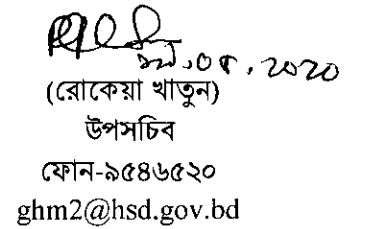 (রোকেয়া খাতুন)
উপসচিব
ফোন-৯৫৪৬৫২০
ghm2@hsd.gov.bd